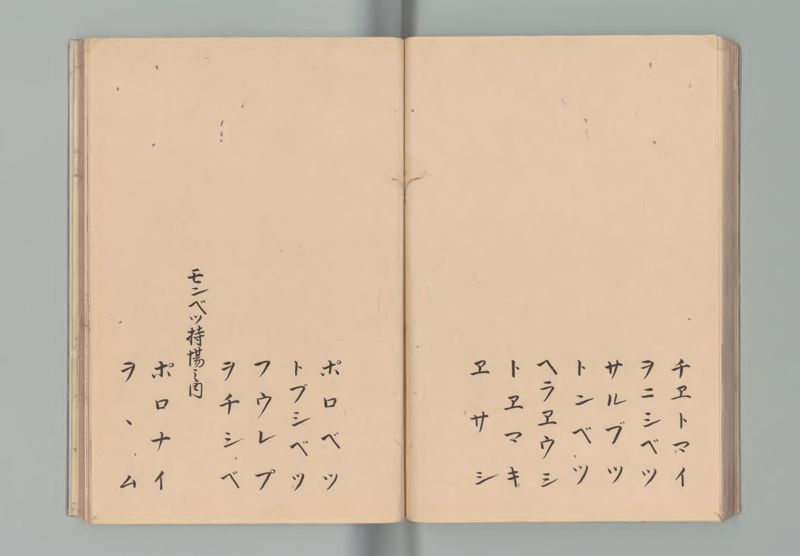 チヱトマイ
ヲニシベツ
サルブツ
トンベツ
ヘラヱウシ
トヱマキ
ヱサシ
ポロベツ
トブシベツ
フウレプ
ヲチシベ
モンベツ持場之内
ポロナイ
ヲヽム